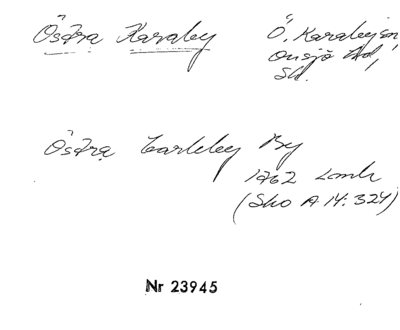 Östra Karaby
Ö. Karaby sn
Onsjö hd,
Sk.
Östra Carleby By
1762 Lmh
(Sko A 14:324)
Nr 23945